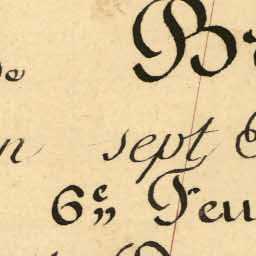 Br
de
n sept
6e,, Feu